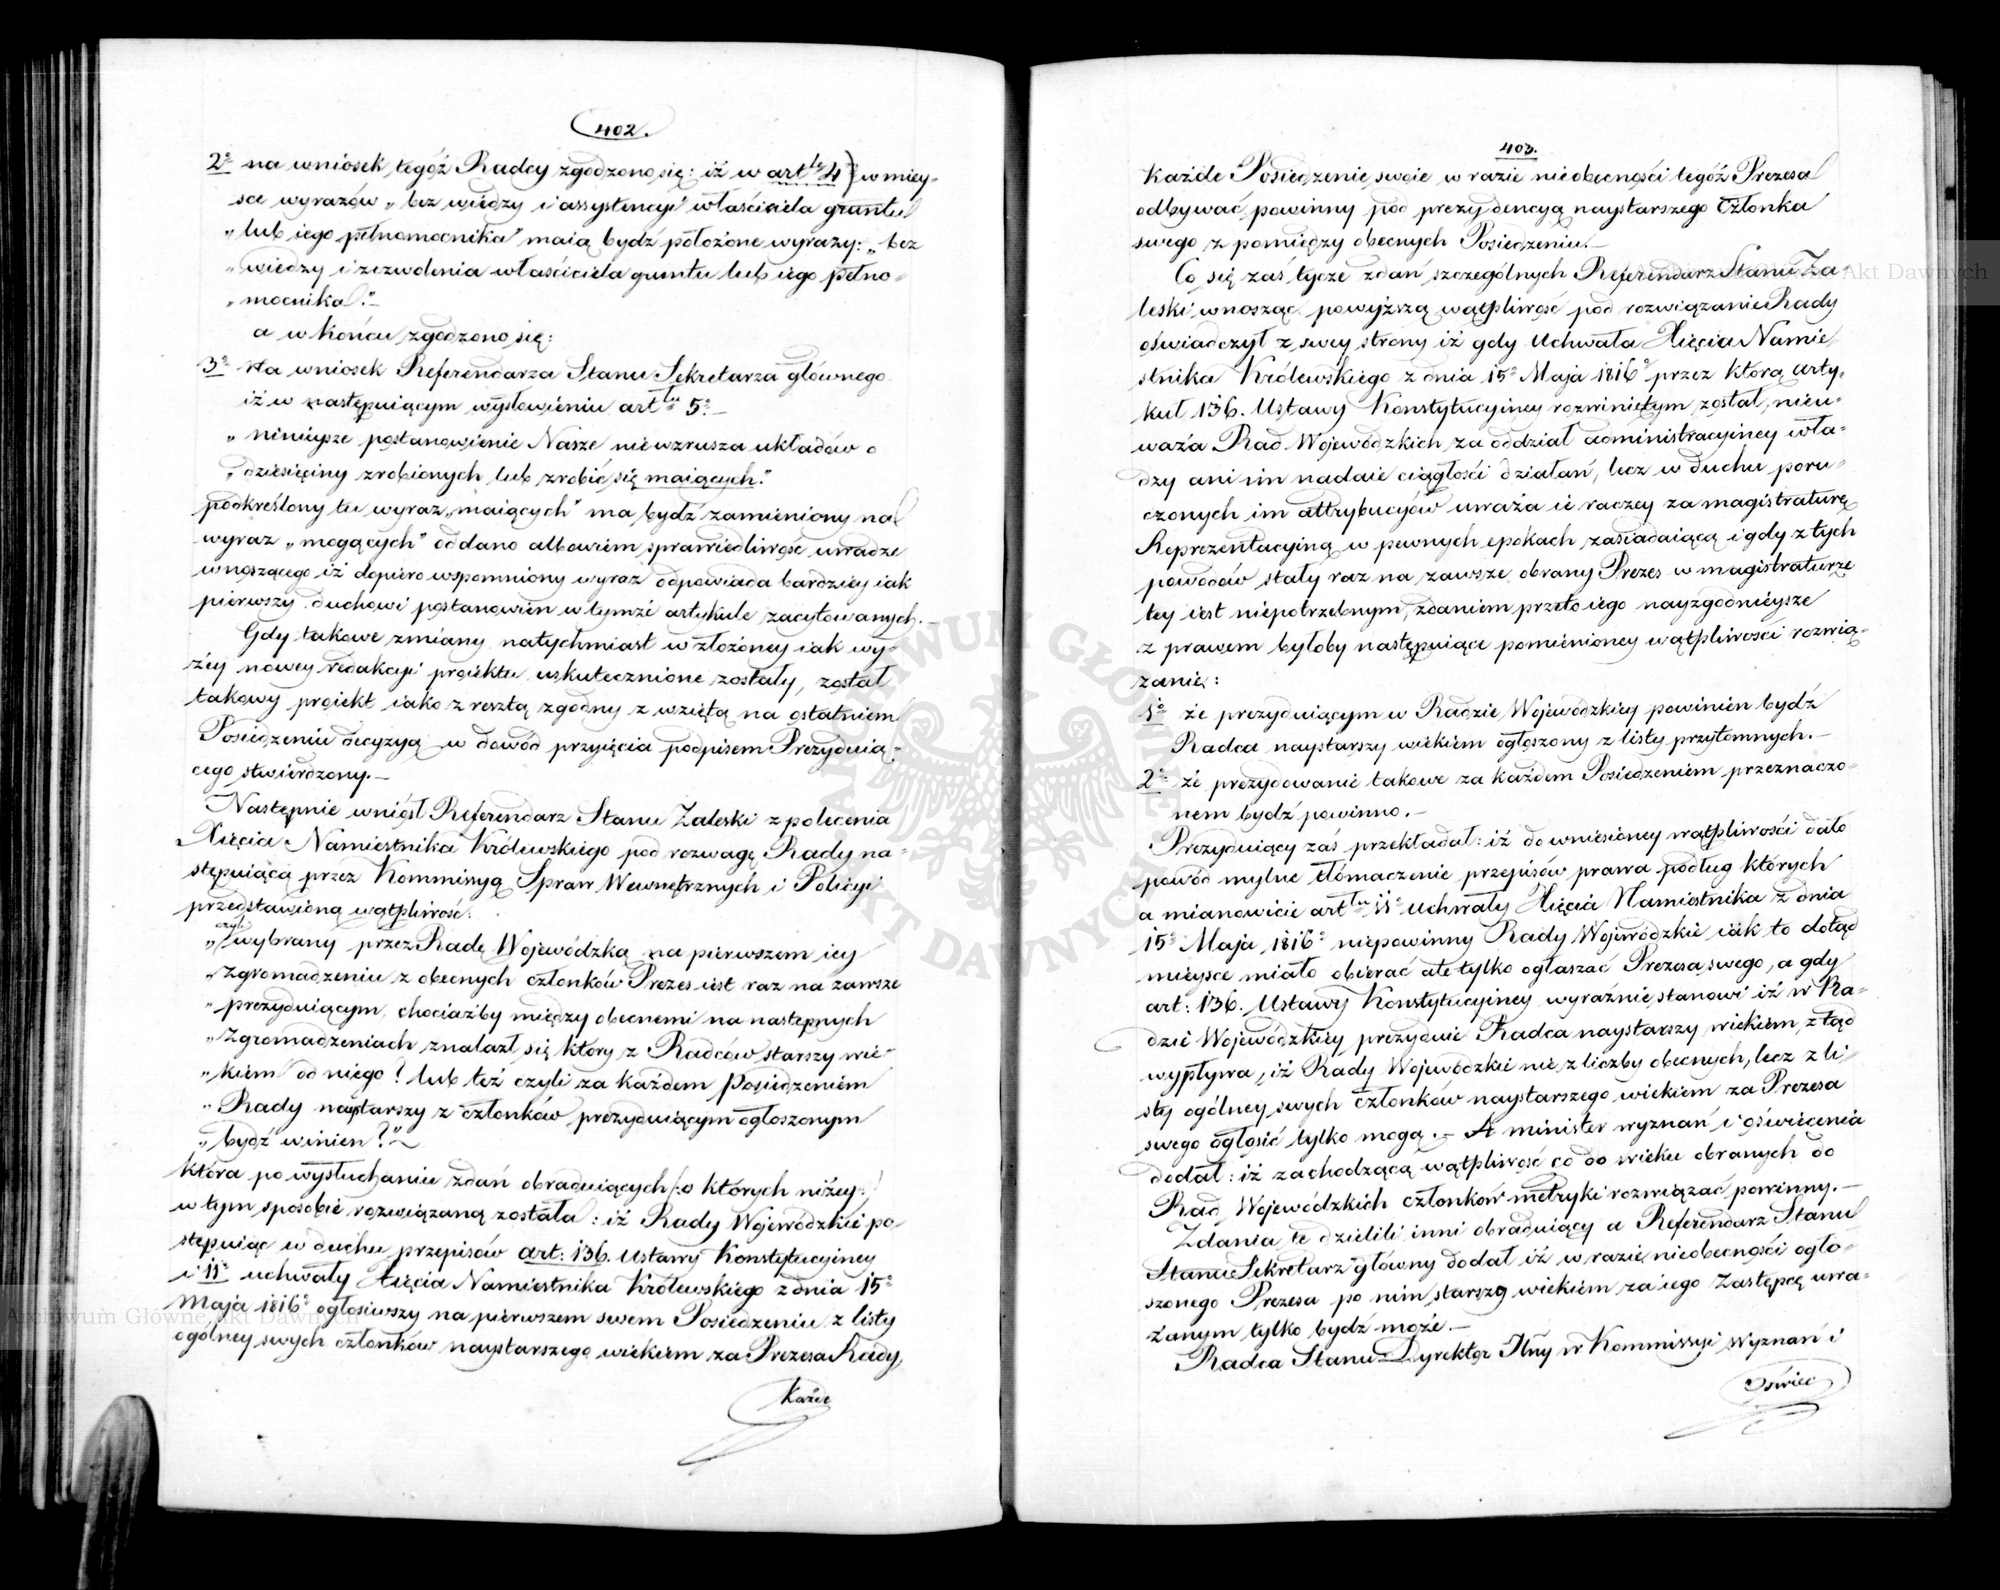 402.
2º na wniosek tegóż Radcy zgodzono się: iż w art le 4 w miey-
sce wyrazów „bez wiedzy i assystencyi" właściciela gruntu
„lub iego pełnomocnika" maią bydź położone wyrazy: „bez
„wiedzy i zezwolenia właściciela gruntu lub iego pełno-
„mocnika."—
a w końcu zgodzono się:
3º na wniosek Referendarza Stanu Sekretarza głównego
iż w następuiącym wysłowieniu art lu 5º—
„ninieysze postanowienie Nasze niewzrusza układów o
„dziesięciny zrobionych lub zrobić się maiących."
podkreślony tu wyraz „maiących" ma bydź zamieniony na
wyraz „mogących" oddano albowiem sprawiedliwość uwadze
wnoszącego iż dopiero wspomniony wyraz odpowiada bardziey iak
pierwszy duchowi postanowień w tymże artykule zacytowanych.—
Gdy takowe zmiany natychmiast w złożoney iak wy-
żey nowey redakcyi proiektu uskutecznione zostały, został
takowy proiekt iako z resztą zgodny z wziętą na ostatniem
Posiedzeniu decyzyą w dowód przyięcia podpisem Prezyduią-
cego stwierdzony.—
Następnie wniósł Referendarz Stanu Zaleski z polecenia
Xięcia Namiestnika Królewskiego pod rozwagę Rady na-
stępuiącą przez Kommissyą Spraw Wewnętrznych i Policyi
przedstawioną wątpliwość:
czyli
„wybrany przez Radę Wojewódzką na pierwszem iey
„Zgromadzeniu z obecnych członków Prezes iest raz na zawsze
„prezyduiącym, chociażby między obecnemi na następnych
„Zgromadzeniach znalazł się który z Radców starszy wie-
„kiem od niego? lub też czyli za każdem Posiedzeniem
„Rady naystarszy z członków prezyduiącym ogłoszonym
„bydź winien?"
która po wysłuchaniu zdań obraduiących /:o których niżey:/
w tym sposobie rozwiązaną została: iż Rady Wojewódzkie po-
stępuiąc w duchu przepisów art: 136. Ustawy Konstytucyiney
i 11º uchwały Xięcia Namiestnika Królewskiego z dnia 15º
Maja 1816º ogłosiwszy na pierwszem swem Posiedzeniu z listy
ogólney swych członków naystarszego wiekiem za Prezesa Rady,
Każde
403.
każde Posiedzenie swoie w razie nieobecności tegóż Prezesa
odbywać powinny pod prezydencyą naystarszego Członka
swego z pomiędzy obecnych Posiedzeniu.—
Co się zaś tycze zdań szczególnych Referendarz Stanu Za
leski wnosząc powyższą wątpliwość pod rozwiązanie Rady
oświadczył z swey strony iż gdy Uchwała Xięcia Namie
stnika Królewskiego z dnia 15º Maja 1816º przez którą arty-
kuł 136. Ustawy Konstytucyiney rozwiniętym został, nieu-
waża Rad Wojewódzkich za oddział administracyiney wła-
dzy ani im nadaie ciągłości działań, lecz w duchu poru-
czonych im attrybucyów uważa ie raczey za magistraturę
Reprezentacyiną w pewnych epokach zasiadaiącą i gdy z tych
powodów stały raz na zawsze obrany Prezes w magistraturze
tey iest niepotrzebnym, zdaniem przeto iego nayzgodnieysze
z prawem byłoby następuiące pomienioney wątpliwości rozwią-
zanie:
1º że prezyduiącym w Radzie Wojewódzkiey powinien bydź
Radca naystarszy wiekiem ogłoszony z listy przytomnych.—
2º że prezydowanie takowe za każdem Posiedzeniem przeznaczo-
nem bydź powinno.—
Prezyduiący zaś przekładał: iż do wniesioney wątpliwości dało
powód mylne tłómaczenie przepisów prawa podług których
a mianowicie art lu 11º Uchwały Xięcia Namiestnika z dnia
15º Maja 1816º niepowinny Rady Wojewódzkie iak to dotąd
mieysce miało obierać ale tylko ogłaszać Prezesa swego, a gdy
art: 136. Ustawy Konstytucyiney wyraźnie stanowi iż w Ra-
dzie Wojewódzkiey prezyduie Radca naystarszy wiekiem, ztąd
wypływa, iż Rady Wojewódzkie nie z liczby obecnych, lecz z li-
sty ogólney swych członków naystarszego wiekiem za Prezesa
swego ogłosić tylko mogą.— A minister wyznań i oświecenia
dodał: iż zachodzącą wątpliwość co do wieku obranych do
Rad Wojewódzkich członków metryki rozwiązać powinny.—
Zdania te dzielili inni obraduiący a Referendarz Stanu
Stanu Sekretarz główny dodał iż w razie nieobecności ogło-
szonego Prezesa po nim starszy wiekiem za iego Zastępcę uwa-
żanym tylko bydź może.—
Radca Stanu Dyrektor Jlny w Kommissyi Wyznań i
Oświec
Archiwum Główne Akt Dawnych
Akt Dawnych
ARCHIWUM GŁÓWNE AKT DAWNYCH